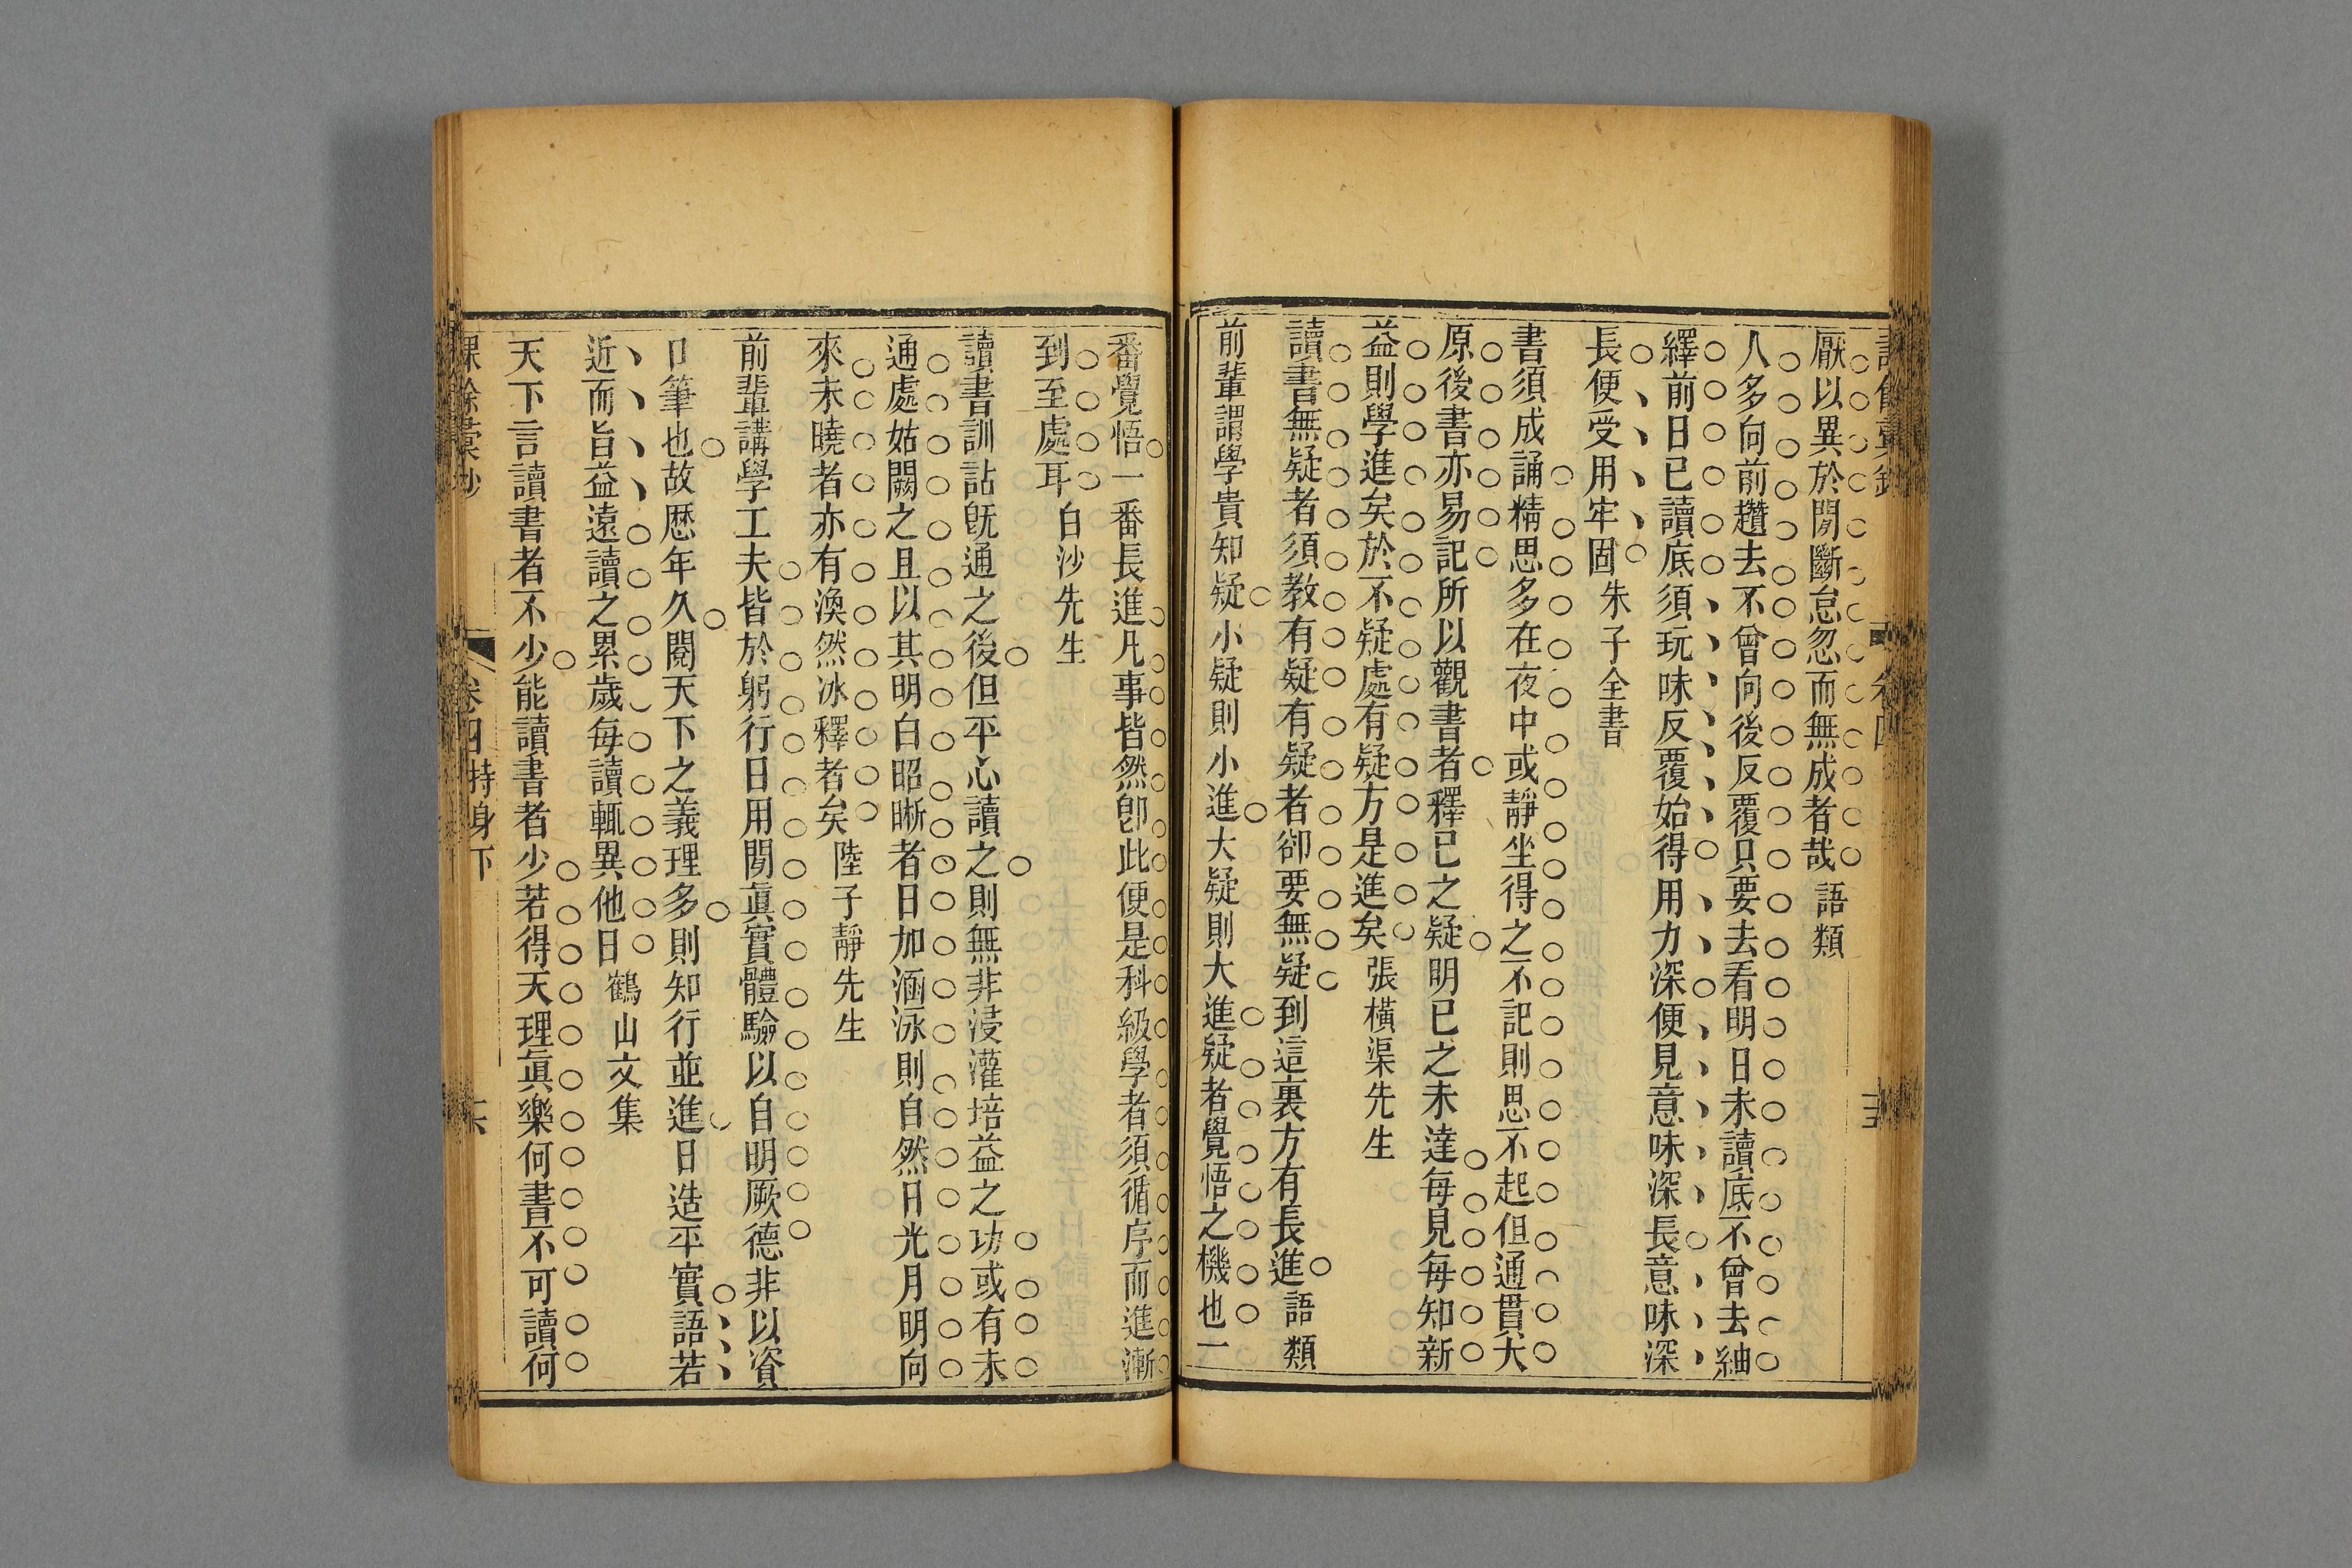 厭以異於閒斷怠忽而無成者哉 語類
人多向前趲去不曾向後反覆只要去看明日未讀底不曾去紬
繹前日已讀底須玩味反覆始得用力深便見意味深長意味深
長便受用牢固 朱子全書
書須成誦精思多在夜中或靜坐得之不記則思不起但通貫大
原後書亦易記所以觀書者釋已之疑明已之未達每見每知新
益則學進矣於不疑處有疑方是進矣 張橫渠先生
讀書無疑者須教有疑有疑者卻要無疑到這裏方有長進 語類
前輩謂學貴知疑小疑則小進大疑則大進疑者覺悟之機也一
番覺悟一番長進凡事皆然卽此便是科級學者須循序而進漸
到至處耳 白沙先生
讀書訓詁旣通之後但平心讀之則無非浸灌培益之功或有未
通處姑闕之且以其明白昭晰者日加涵泳則自然日光月明向
來未曉者亦有渙然冰釋者矣 陸子靜先生
前輩講學工夫皆於躬行日用閒眞實體驗以自明厥德非以資
口筆也故歷年久閱天下之義理多則知行並進日造平實語若
近而旨益遠讀之累歲每讀輒異他日 鶴山文集
天下言讀書者不少能讀書者少若得天理眞樂何書不可讀何
課餘彙鈔
卷四 持身下
六